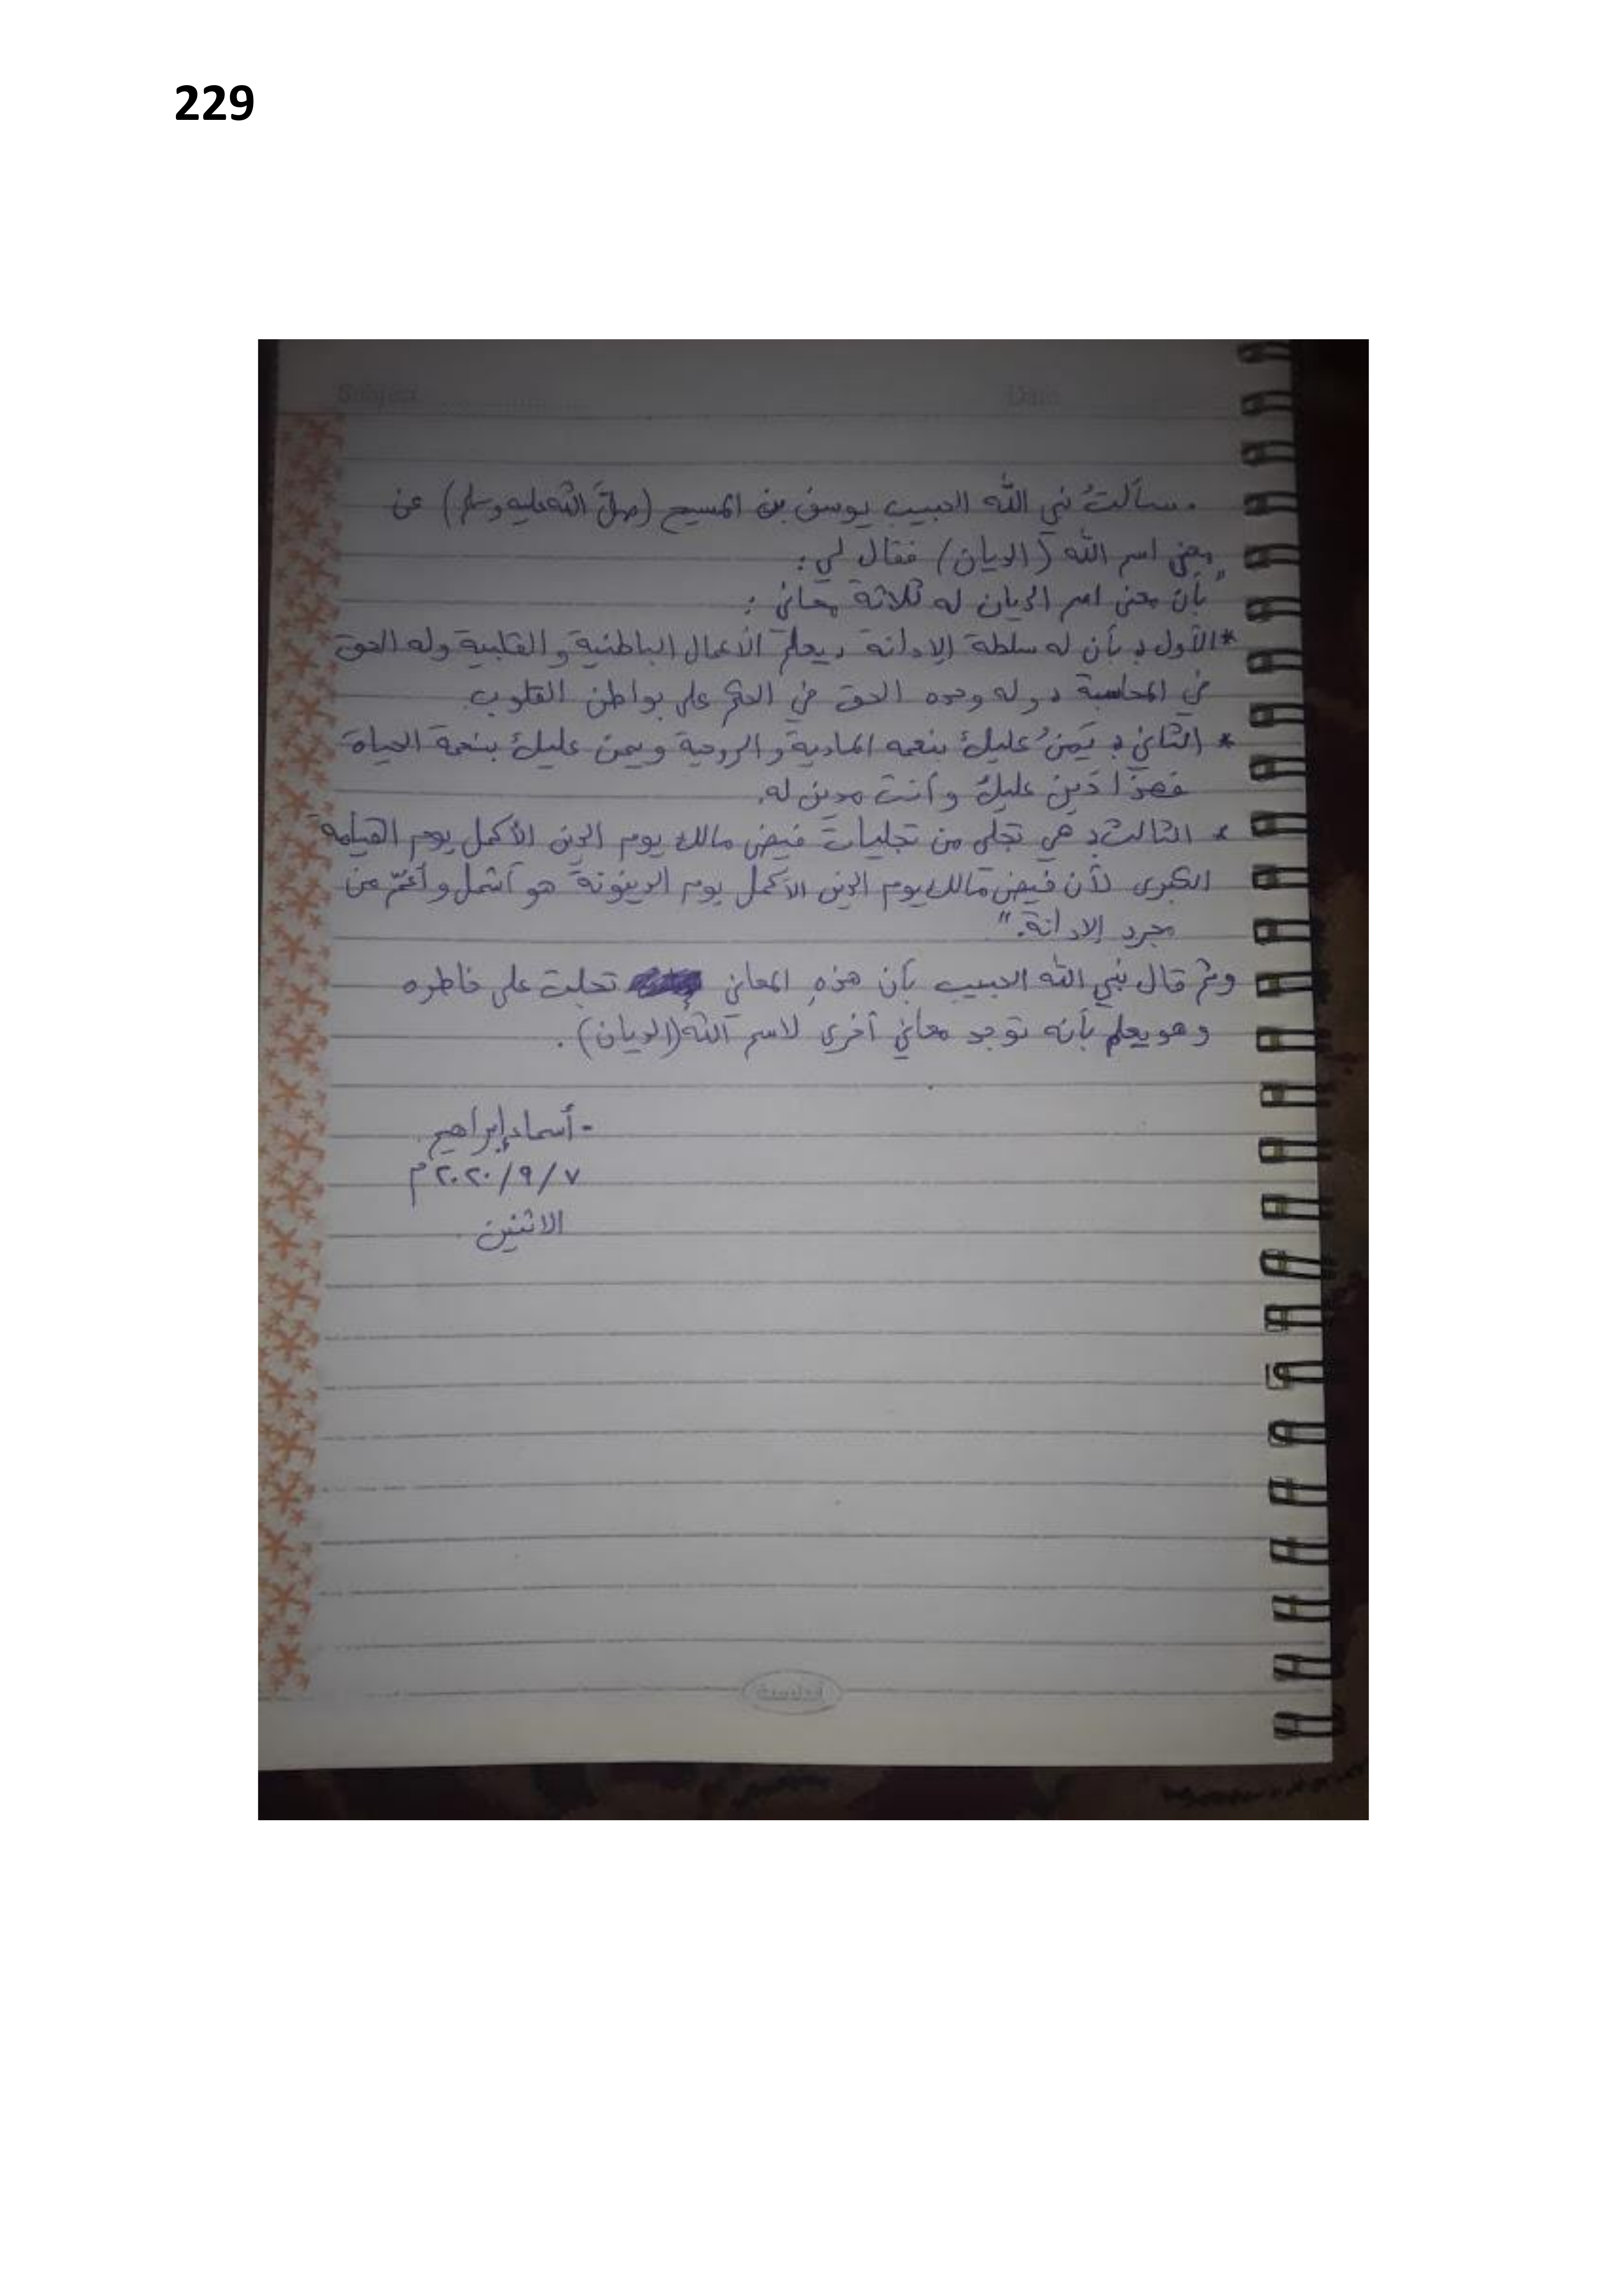 229
Subject
Date
. سألتُ نبي الله الحبيب يوسف بن المسيح (صلَّ الله عليه وسلم) عن
معنى اسم الله (الديان) فقال لي :
" بأن معنى اسم الديان له ثلاثة معاني :
* الأول : بأن له سلطة الإدانة ، يعلم الأعمال الباطنية و القلبية وله الحق
في المحاسبة ، وله وحده الحق في الحكم على بواطن القلوب .
* الثاني : يَمِنُ عليك بنعمه المادية و الروحية و يمن عليك بنعمة الحياة
فهذا دَين عليك و أنت مدين له .
* الثالث : هي تجلي من تجليات فيض مالك يوم الدين الأكمل يوم القيامة
الكبرى لأن فيض مالك يوم الدين الأكمل يوم الدينونة هو أشمل و أعمّ من
مجرد الإدانة . "
وثم قال نبي الله الحبيب بأن هذهِ المعاني تجلت على خاطره
وهو يعلم بأنه توجد معاني أخرى لاسم الله (الديان) .
- أسماء إبراهيم .
٧ / ٩ / ٢٠٢٠ م
الاثنين .